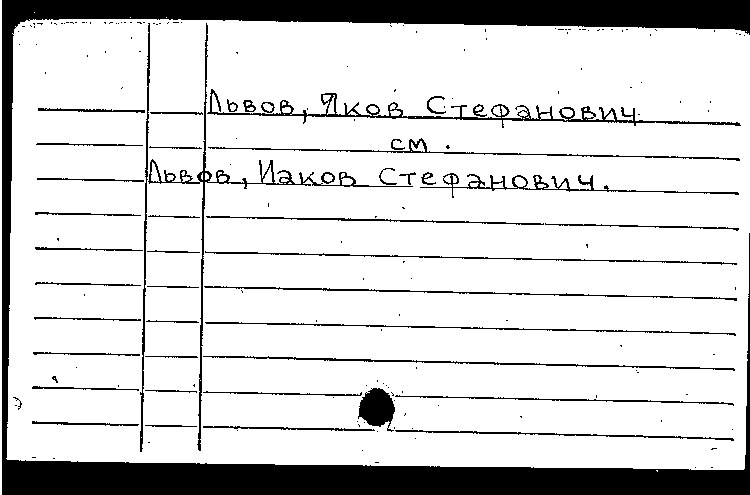 Львов, Яков Стефанович
см.
Львов, Иаков Стефанович.